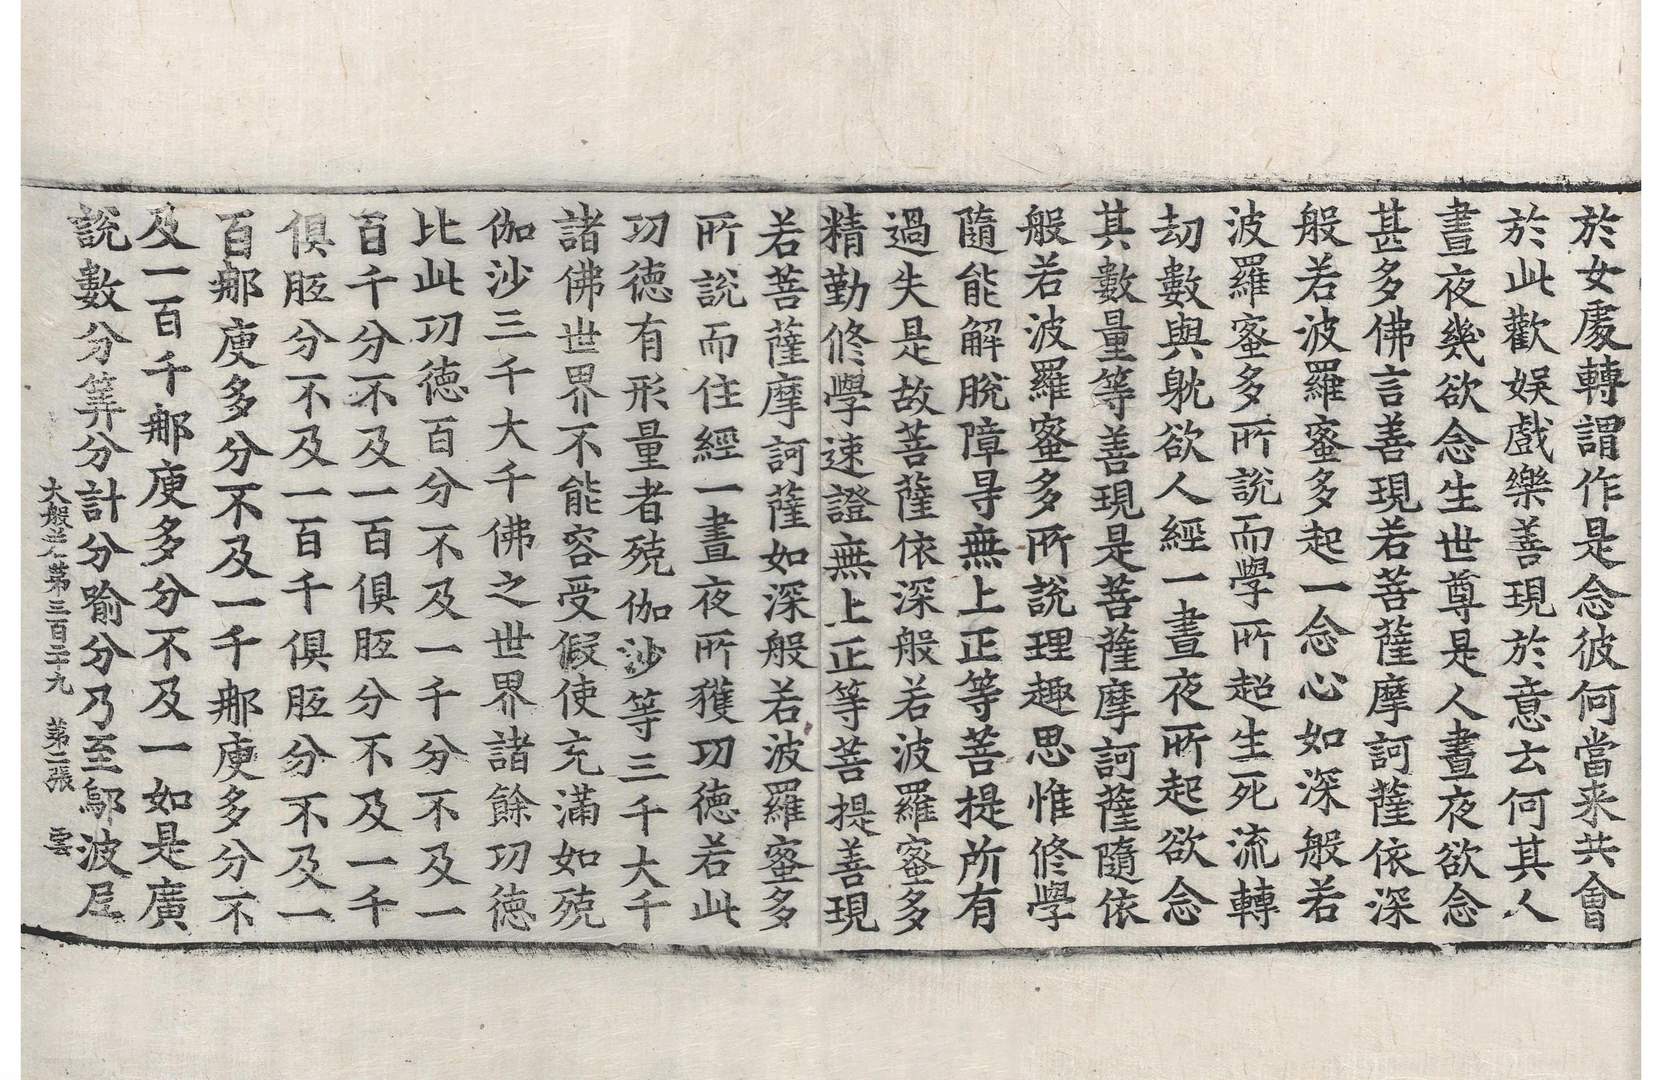 於女處轉謂作是念彼何當来共會
於此歡娛戲樂善現於意云何其人
晝夜幾欲念生世尊是人晝夜欲念
甚多佛言善現若菩薩摩訶薩依深
般若波羅蜜多起一念心如深般若
波羅蜜多所說而學所超生死流轉
劫數與躭欲人經一晝夜所起欲念
其數量等善現是菩薩摩訶薩隨依
般若波羅蜜多所說理趣思惟修學
隨能解脫障㝵無上正等菩提所有
過失是故菩薩依深般若波羅蜜多
精勤修學速證無上正等菩提善現
若菩薩摩訶薩如深般若波羅蜜多
所說而住經一晝夜所獲功德若此
功德有形量者殑伽沙等三千大千
諸佛世界不能容受假使充滿如殑
伽沙三千大千佛之世界諸餘功德
比此功德百分不及一千分不及一
百千分不及一百俱胝分不及一千
俱胝分不及一百千俱胝分不及一
百那庾多分不及一千那庾多分不
及一百千那庾多分不及一如是廣
說數分筭分計分喻分乃至鄔波尼
大般若第三百二十九 第二張 雲